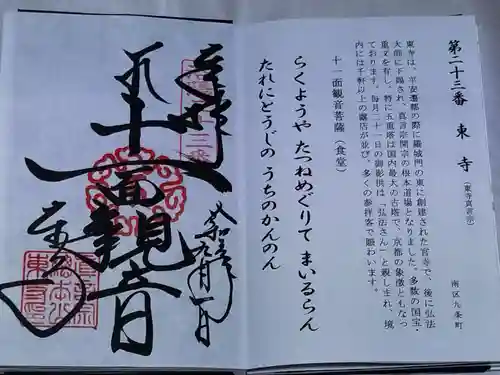 第二十三番 東寺 (東寺真言宗)
南区九条町
東寺は、平安遷都の際に羅城門の東に創建された官寺で、後に弘法
大師に下賜され、真言宗開宗の根本道場となりました。多数の国宝・
重文を有し、特に五重塔は国内最大の古塔で、京都の象徴ともなっ
ております。毎月二十一日の御影供は「弘法さん」と親しまれ、境
内には千軒以上の露店が並び、多くの参拝客で賑わいます。
十一面観音菩薩(食堂)
らくようや たつねめぐりて まいるらん
たれにとうじの うちのかんのん
奉拝
十一面観音
令和 年九月一日